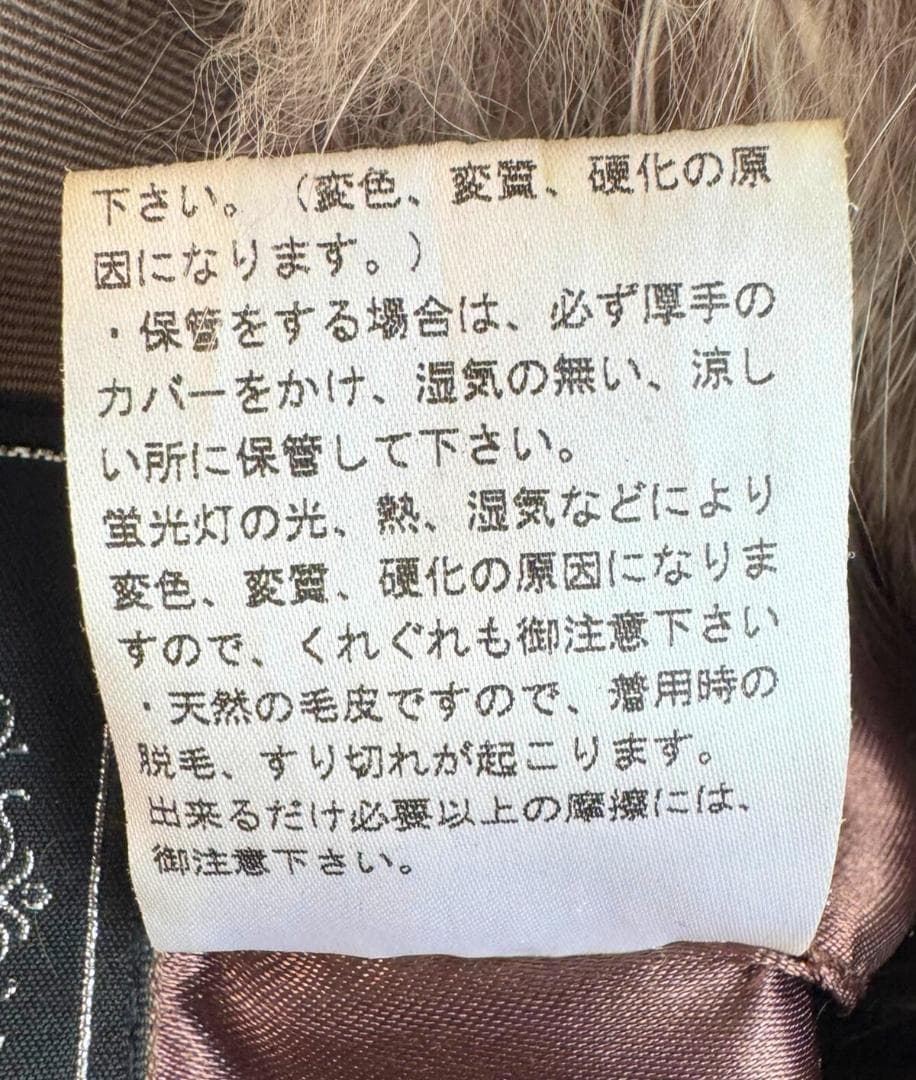 下さい。（変色、変質、硬化の原
因になります。）
・保管をする場合は、必ず厚手の
カバーをかけ、湿気の無い、涼し
い所に保管して下さい。
蛍光灯の光、熱、湿気などにより
変色、変質、硬化の原因になりま
すので、くれぐれも御注意下さい
・天然の毛皮ですので、着用時の
脱毛、すり切れが起こります。
出来るだけ必要以上の摩擦には、
御注意下さい。